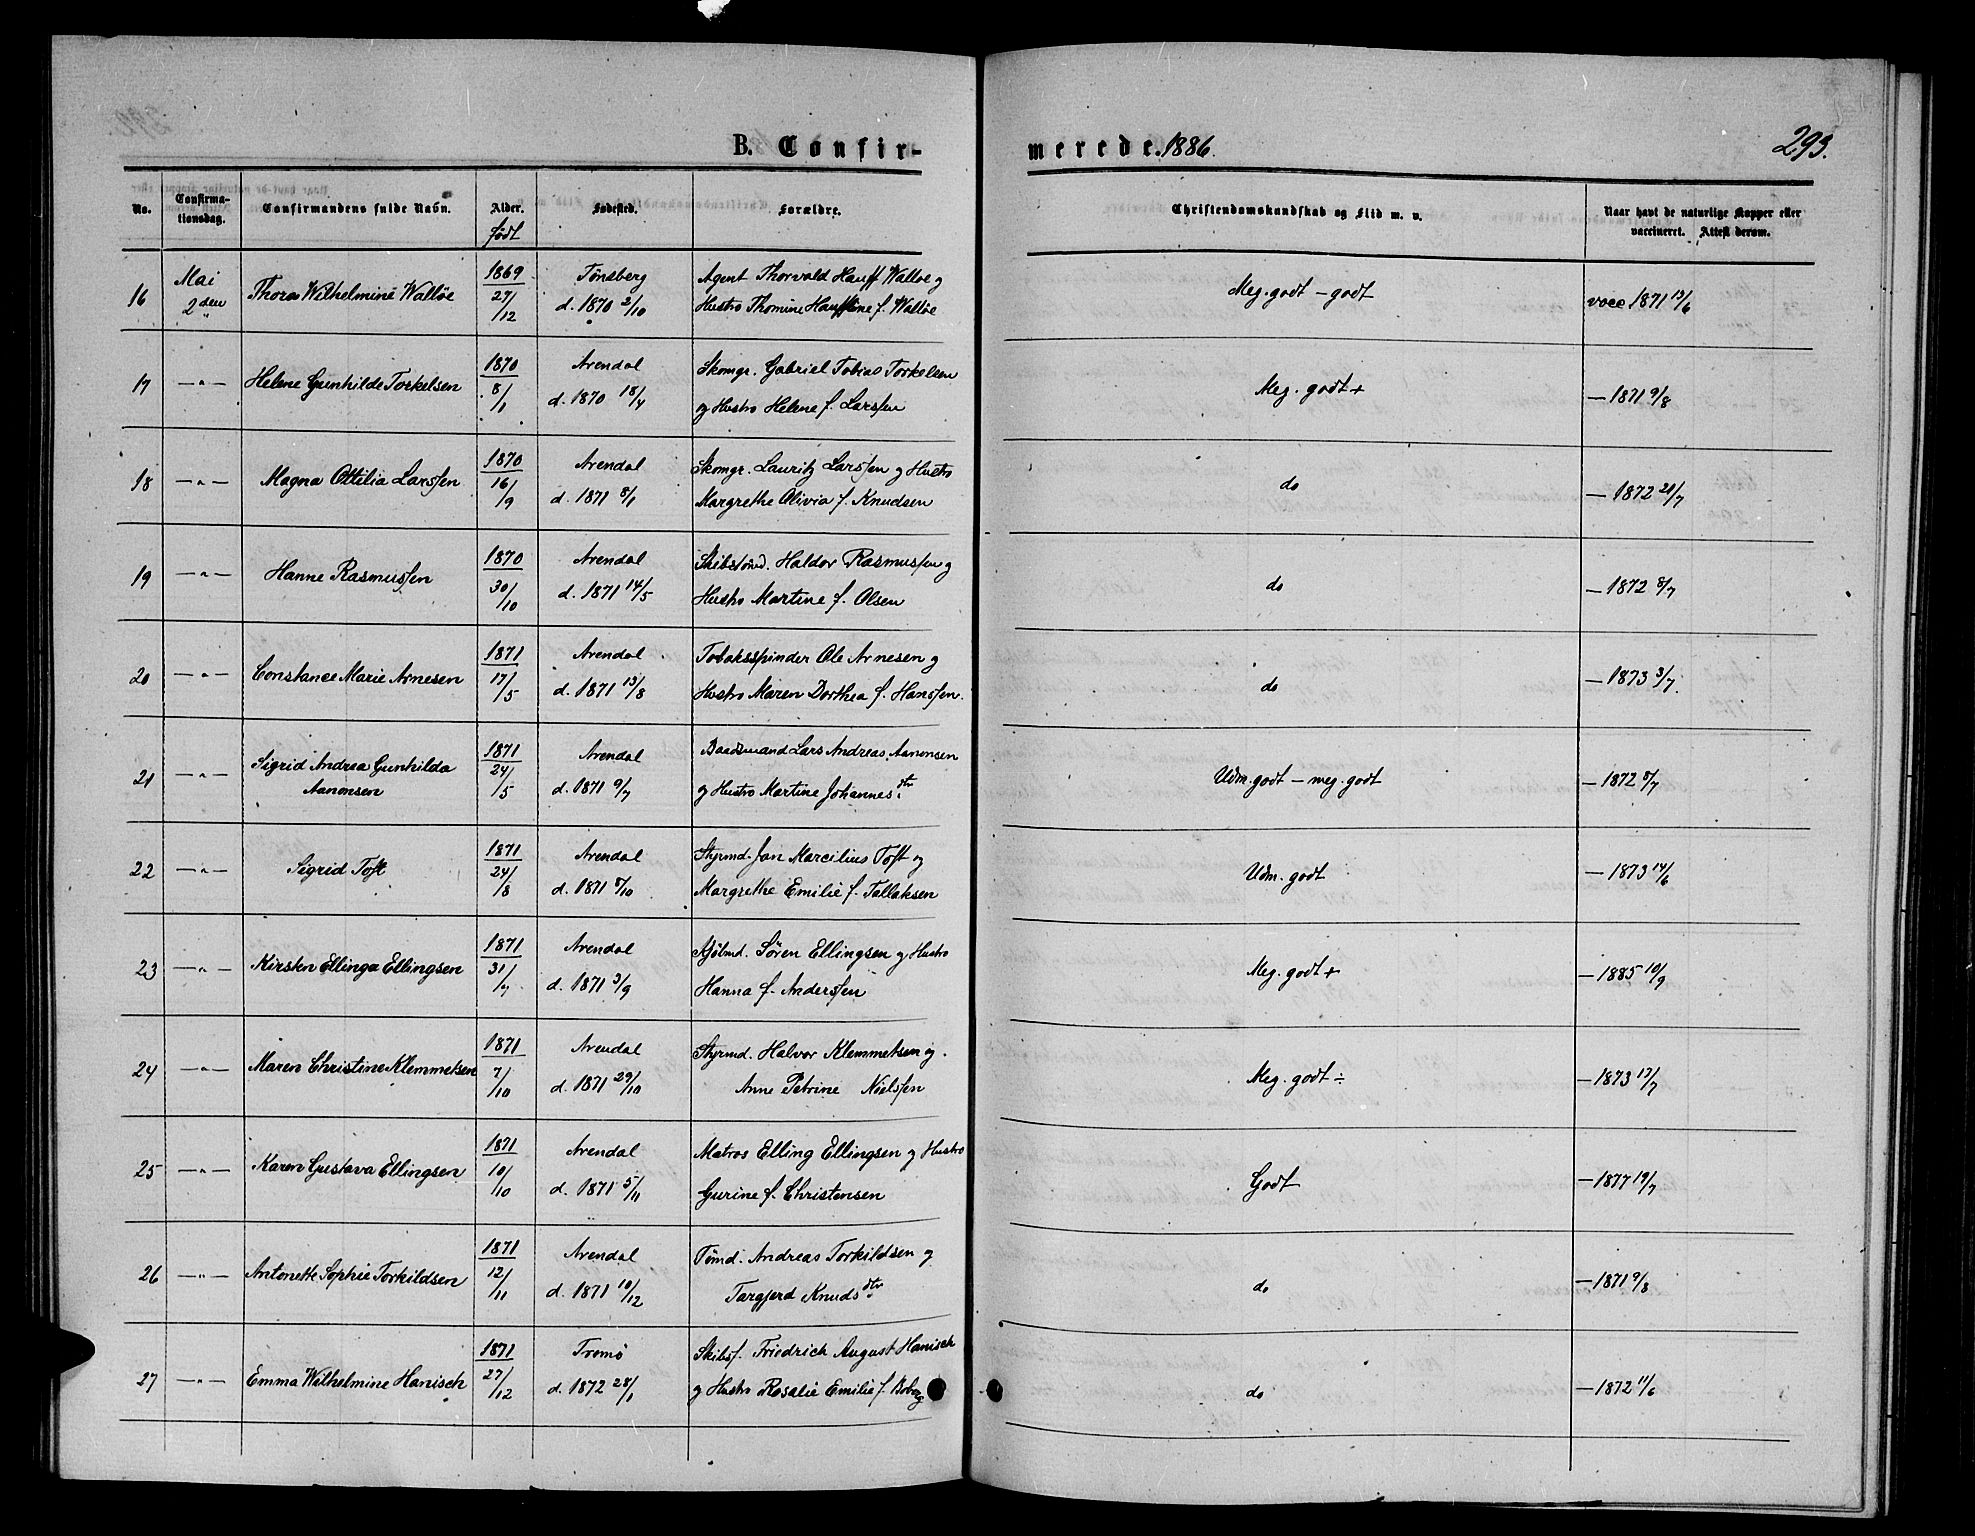 B. Confirmerede. 1886. 293.
No. Confirmationsdag. Confirmandens fulde Navn. Alder. født Fødested. Forældre. Christendomskundskab og Flid m. v. Naar havt de naturlige Kopper eller vaccineret. Attest derom.
16 Mai 2den Thora Wilhelmine Walløe 1869 27/12 Tønsberg d. 1870 2/10 Agent Thorvald Hauff Walløe og
Hustro Thomine Hauffine f. Walløe Meg. godt - godt vacc 1871 13/6
17 -"- Helene Gunhilde Torkelsen 1870 8/1 Arendal d. 1870 18/4 Skomgr. Gabriel Tobias Torkelsen
og Hustro Helene f. Larssen Meg. godt + - 1871 9/8
18 -"- Magna Ottilia Larssen 1870 16/9 Arendal d. 1871 8/1 Skomgr. Lauritz Larssen og Hustro
Margrethe Olivia f. Knudsen do - 1872 21/7
19 -"- Hanne Rasmussen 1870 30/10 Arendal d. 1871 14/5 Skibstømd. Haldor Rasmussen og
Hustro Martine f. Olsen do - 1872 8/7
20 -"- Constance Marie Arnesen 1871 17/5 Arendal d. 1871 13/8 Tobaksspinder Ole Arnesen og
Hustro Maren Dorthea f. Hanssen. do - 1873 3/7.
21 -"- Sigrid Andrea Gunhilda
Aanonsen 1871 24/5 Arendal d. 1871 9/7 Baadsmand Lars Andreas Aanonsen
og Hustro Martine Johannesdtr Udm. godt - meg. godt - 1872 8/7
22 -"- Sigrid Toft 1871 24/8 Arendal d. 1871 8/10 Styrmd. Jan Marcilius Toft og
Margrethe Emilie f. Tallaksen Udm. godt - 1873 14/6
23 -"- Kirsten Ellinga Ellingsen 1871 31/7 Arendal d. 1871 3/9 Sjølmd. Søren Ellingsen og Hustro
Hanna f. Anderssen Meg. godt + - 1885 10/9
24 -"- Maren Christine Klemmetsen 1871 7/10 Arendal d. 1871 29/10 Styrmd. Halvor Klemmetsen og
Anne Petrine Nielssen Meg. godt ÷ - 1873 13/7
25 -"- Karen Gustava Ellingsen 1871 10/10 Arendal d. 1871 5/11 Matros Elling Ellingsen og Hustro
Gurine f. Christensen Godt - 1877 19/7
26 -"- Antonette Sophie Torkildsen 1871 12/11 Arendal d. 1871 10/12 Tømd. Andreas Torkildsen og
Targjerd Knudsdtr do - 1871 9/8
27 -"- Emma Wilhelmine Hanisch 1871 27/12 Tromø d. 1872 28/1 Skibsf. Friedrich August Hanisch
og Hustro Rosalie Emilie f. Boberg do - 1872 11/6